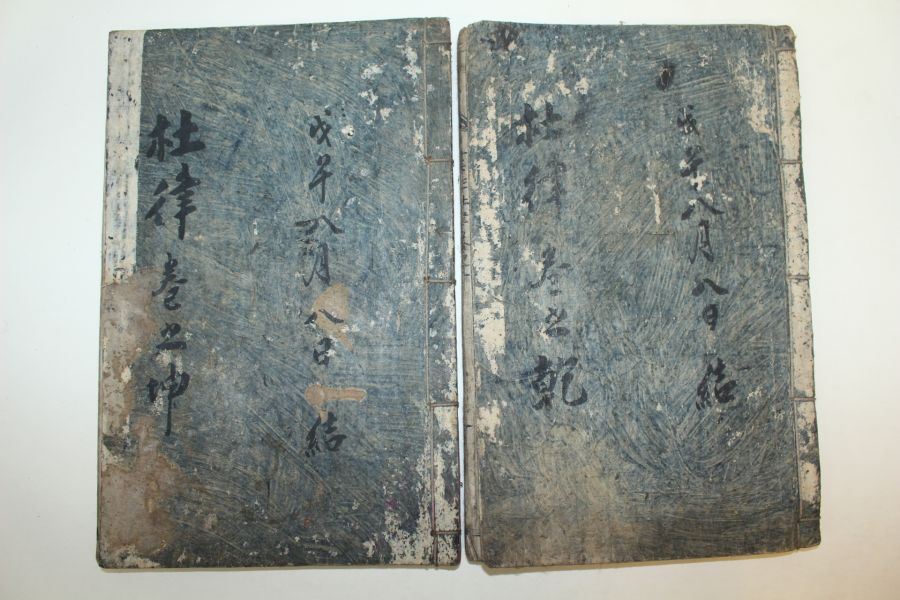 戊午八月八日結
杜律卷之乾
戊午八月八日結
杜律卷之坤